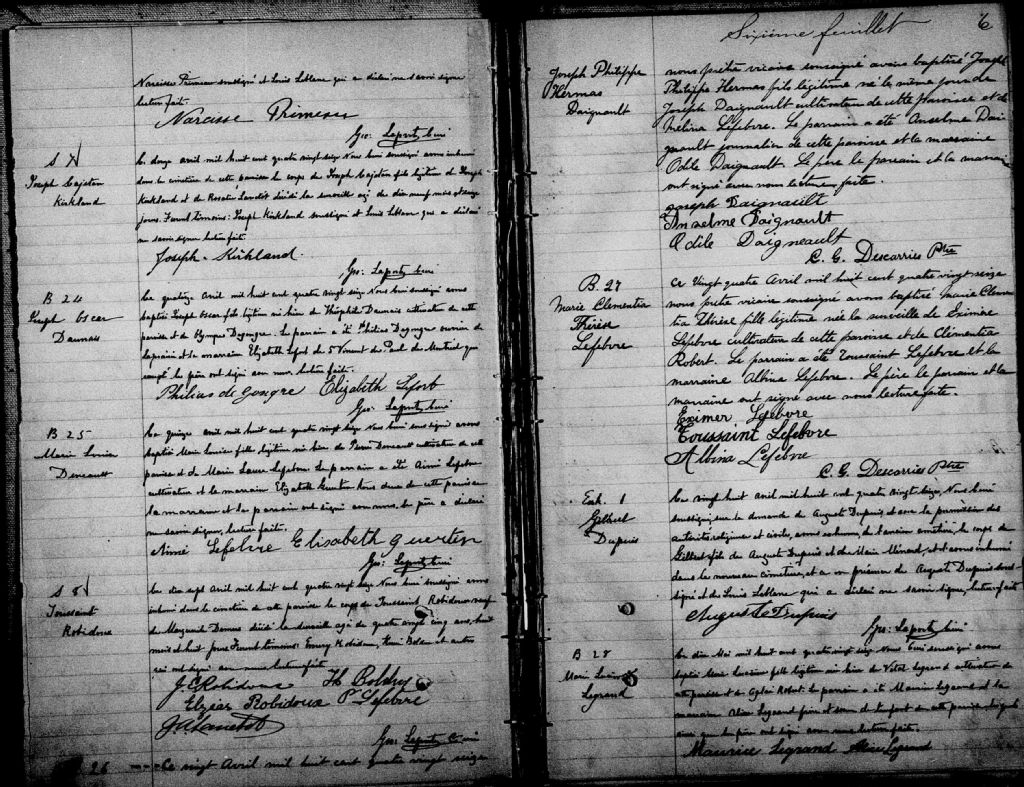 Narcisse Primeau soussigné et Louis Leblanc qui a déclaré ne savoir signer
lecture faite.
Narcisse Primeau
Geo: Laporte curé
S 7
Joseph Cajetan
Kirkland
Le douze avril mil huit cent quatre vingt seize Nous curé soussigné avons inhumé
dans le cimetière de cette paroisse le corps de Joseph Cajetan fils légitime de Joseph
Kirkland et de Rosalie décédé la surveille agé de dix neuf mois et
jours. Furent témoins: Joseph Kirkland soussigné et Louis Leblanc qui a déclaré
ne savoir signer lecture faite.
Joseph Kirkland
Geo: Laporte curé
B 24
Joseph Oscar
Daunais
Le quatorze avril mil huit cent quatre vingt seize Nous curé soussigné avons
baptisé Joseph Oscar fils légitime né hier de Théophile Daunais cultivateur de cette
paroisse et de Olympe Degongre. Le parrain a été Philias Degongre ouvrier de
Laprairie et la marraine Elizabeth Lefort de St Vincent de Paul de Montréal qui
le père ont signé avec nous. lecture faite.
Philias de Gongre Elizabeth Lefort
Geo: Laporte curé
B 25
Marie
Denault
Le quinze avril mil huit cent quatre vingt seize Nous curé soussigné avons
baptisé Marie fille légitime née hier de Pierre Denault cultivateur de cette
paroisse et de Marie Laura Lefebvre. Le parrain a été Aimé Lefebvre
cultivateur et la marraine Elizabeth Guertin tous deux de cette paroisse
la marraine et le parrain ont signé avec nous, le père a déclaré
ne savoir signer, lecture faite.
Aimé Lefebvre Elisabeth Guertin
Geo: Laporte curé
S 8
Toussaint
Robidoux
Le dix sept avril mil huit cent quatre vingt seize Nous curé soussigné avons
inhumé dans le cimetière de cette paroisse le corps de Toussaint Robidoux veuf
de Marguerite décédé la surveille agé de quatre vingt cinq ans, huit
mois et huit jours Furent témoins: Robidoux, Bolduc et autres
qui ont signé avec nous lecture faite
J.E. Robidoux
Elzéar Robidoux P. Lefebvre
Geo: Laporte curé
26
Ce vingt Avril mil huit cent quatre vingt seize
Sixième feuillet
6
Joseph Philippe
Hermas
Daignault
nous prêtre vicaire soussigné avons baptisé Joseph
Philippe Hermas fils légitime né le même jour de
Joseph Daignault cultivateur de cette paroisse et de
Mélina Lefebvre. Le parrain a été Anselme Dai
gnault journalier de cette paroisse et la marraine
Odile Daignault. Le père le parrain et la marraine
ont signé avec nous lecture faite.
Joseph Daignault
Anselme Daignault
Odile Daigneault
C. G. Descarries Ptre
B. 27
Marie Clementia
Thérèse
Lefebvre
Ce Vingt quatre Avril mil huit cent quatre vingt seize
nous prêtre vicaire soussigné avons baptisé Marie Clemen
tia Thérèse fille légitime née la surveille de Exzimère
Lefebvre cultivateur de cette paroisse et de Clémentia
Robert. Le parrain a été Toussaint Lefebvre et la
marraine Albina Lefebvre. Le père le parrain et la
marraine ont signé avec nous lecture faite.
Exzimer Lefebvre
Toussaint Lefebvre
Albina Lefebvre
C. G. Descarries Ptre
Exh. 1
Gilbert
Dupuis
Le vingt huit avril mil huit cent quatre vingt seize, Nous curé
soussigné, sur la demande de Auguste Dupuis et avec la permission des
autorités religieuse et civile, avons exhumé, de l'ancien cimetière, le corps de
Gilbert fils de Auguste Dupuis et de Marie Ménard, et l'avons inhumé
dans le nouveau cimetière, et ce en présence de Auguste Dupuis sous-
signé et de Louis Leblanc qui a déclaré ne savoir signer, lecture faite
Auguste Dupuis
Geo: Laporte curé
B 28
Marie
Legrand
Le dix Mai mil huit cent quatre vingt seize Nous curé soussigné avons
baptisé Marie fille légitime née hier de Vital Legrand cultivateur de
cette paroisse et de Robert. Le parrain a été Maurice Legrand et la
marraine Legrand frère et soeur de l'enfant de cette paroisse lesquels
ainsi que le père ont signé avec nous lecture faite.
Maurice Legrand Legrand